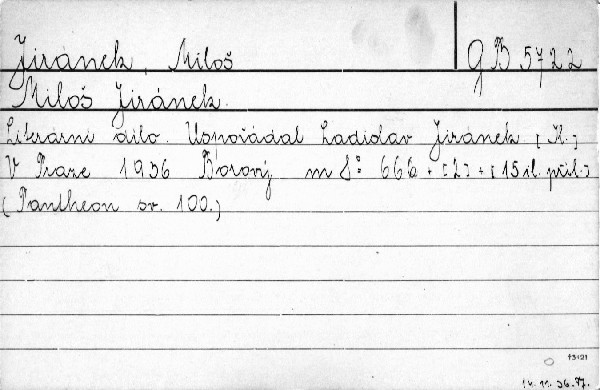 Jiránek, Miloš GB 5722
Miloš Jiránek.
Literární dílo. Uspořádal Ladislav Jiránek. [Il.]
V Praze 1936 Borový m 8° 666 + [2] + [15 il. příl.]
(Pantheon sv. 100.)
13121
14. 11. 36. 77.